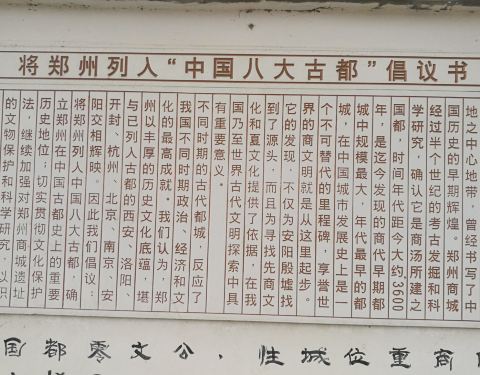 将郑州列入“中国八大古都”倡议书
地之中心地带，曾经书写了中
国历史的早期辉煌。郑州商城
经过半个世纪的考古发掘和科
学研究，确认它是商汤所建之
国都，时间年代距今大约3600
年，是迄今发现的商代早期都
城中规模最大、年代最早的都
城，在中国城市发展史上是一
个不可替代的里程碑，享誉世
界的商文明就是从这里起步。
它的发现，不仅为安阳殷墟找
到了源头，而且为寻找先商文
化和夏文化提供了依据，在我
国乃至世界古代文明探索中具
有重要意义。
不同时期的古代都城，反应了
我国不同时期政治、经济和文
化的最高成就。我们认为，郑
州以丰厚的历史文化底蕴，堪
与已列入古都的西安、洛阳、
开封、杭州、北京、南京、安
阳交相辉映。因此我们倡议：
将郑州列入中国八大古都，确
立郑州在中国古都史上的重要
历史地位；切实贯彻文化保护
法，继续加强对郑州商城遗址
的文物保护和科学研究，以积
国都零文公，性城位重商